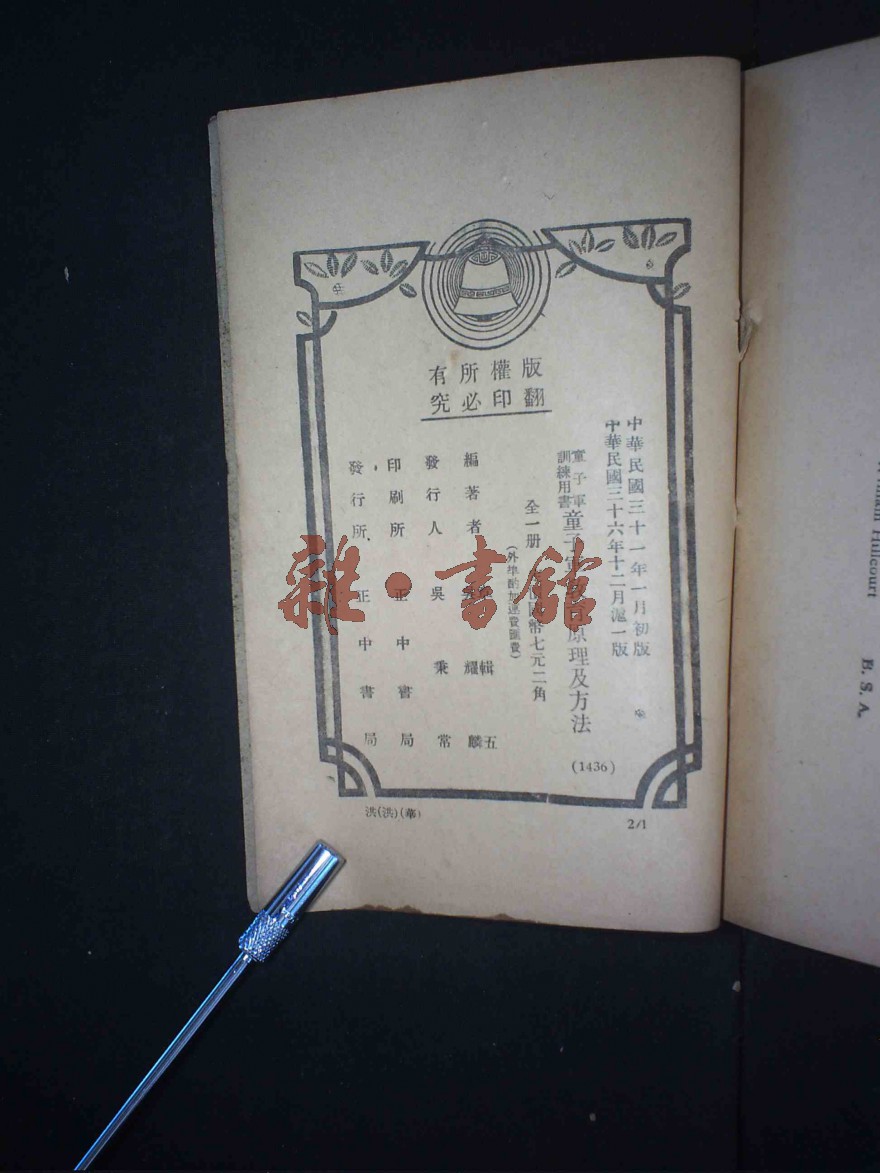 版權所有
翻印必究
中華民國三十一年一月初版
中華民國三十六年十二月滬一版
童子軍訓練用書
童子軍 原理及方法
(1436)
全一册 國幣七元二角
(外埠酌加運費匯費)
編著者 輯五 耀麟
發行人 吳秉常
印刷所 正中書局
發行所 正中書局
洪(洪)(華)
2/1
雜·書館
William Hillcourt
B. S. A.